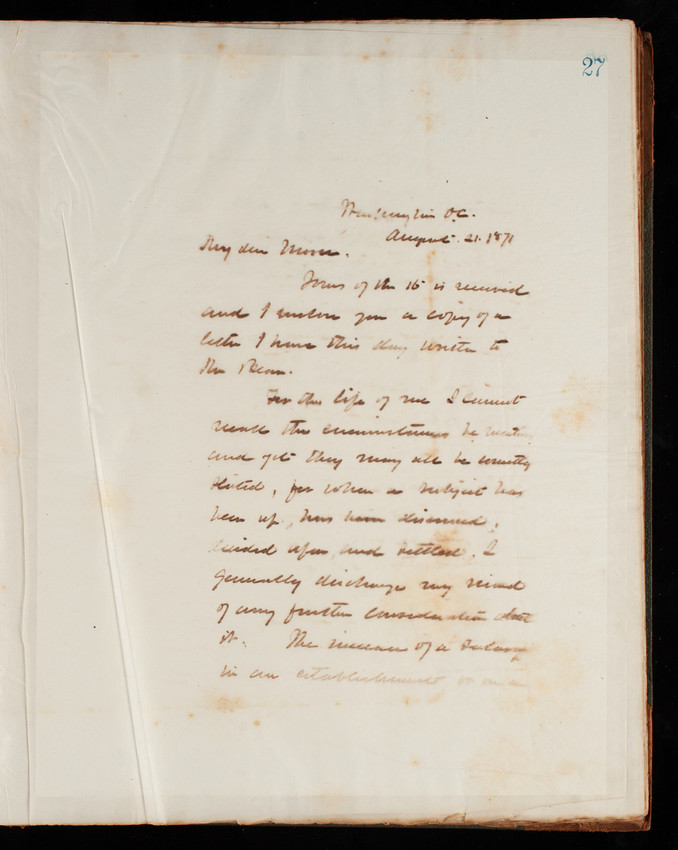 27
Washington D.C.
August 21. 1871
My dear Moore.
Yours of the 16 is received
and I enclose you a copy of a
letter I have this day written to
Mr
For the life of me I cannot
recall the circumstances he
and yet they may all be correctly
stated, for when a subject has
been up, has been discussed,
decided upon, and settled, I
generally discharge my mind
of any further consideration
it. The increase of a salary
in an establishment or on a